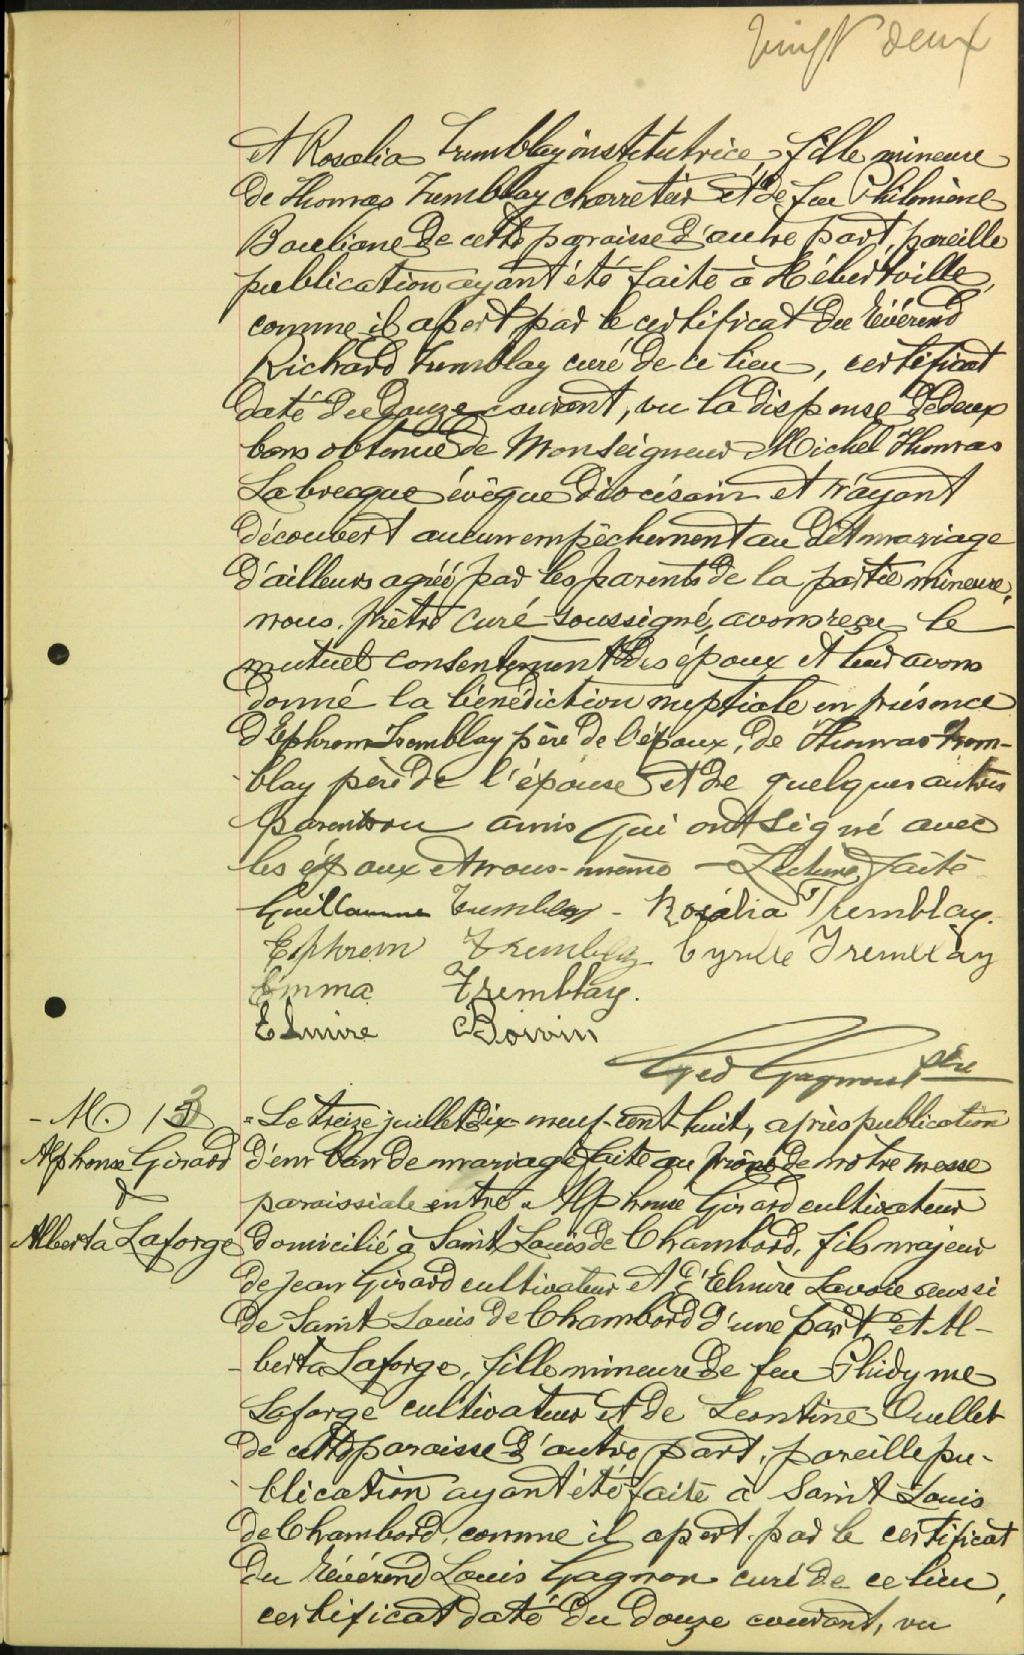 vingt deux
et Rosalia Tremblay institutrice, fille mineure
de Thomas Tremblay charretier et de feu Philomène
Bouliane de cette paroisse d'autre part, pareille
publication ayant été faite à Hébertville,
comme il apert par le certificat du Révérend
Richard Tremblay curé de ce lieu, certificat
daté du douze courant, vu la dispense de deux
bans obtenue de Monseigneur Michel Thomas
Labrecque évêque diocésain et n'ayant
découvert aucun empêchement au dit mariage
d'ailleurs agréé par les parents de la partie mineure,
nous prêtre curé soussigné, avons reçu le
mutuel consentement des époux et leur avons
donné la bénédiction nuptiale en présence
d'Ephrem Tremblay père de l'époux, de Thomas Trem-
blay père de l'épouse et de quelques autres
parents ou amis qui ont signé avec
les époux et nous-même — Lecture faite
Guillaume Tremblay - Rosalia Tremblay.
Ephrem Tremblay Cyrille Tremblay
Emma Tremblay.
Elmire Boivin
Ged Gagnon ptre
- M. 13 " Le treize juillet dix-neuf-cent-huit, après publication
Alphonse Girard d'un ban de mariage faite au prône de notre messe
& paroissiale entre " Alphonse Girard cultivateur
Alberta Laforge domicilié à Saint Louis de Chambord, fils majeur
de Jean Girard cultivateur et d'Elmire Lavoie aussi
de Saint Louis de Chambord d'une part et Al-
berta Laforge, fille mineure de feu Phidyme
Laforge cultivateur et de Leontine Ouellet
de cette paroisse d'autre part, pareille pu-
blication ayant été faite à Saint Louis
de Chambord, comme il apert par le certificat
du Révérend Louis Gagnon curé de ce lieu,
certificat daté du douze courant, vu